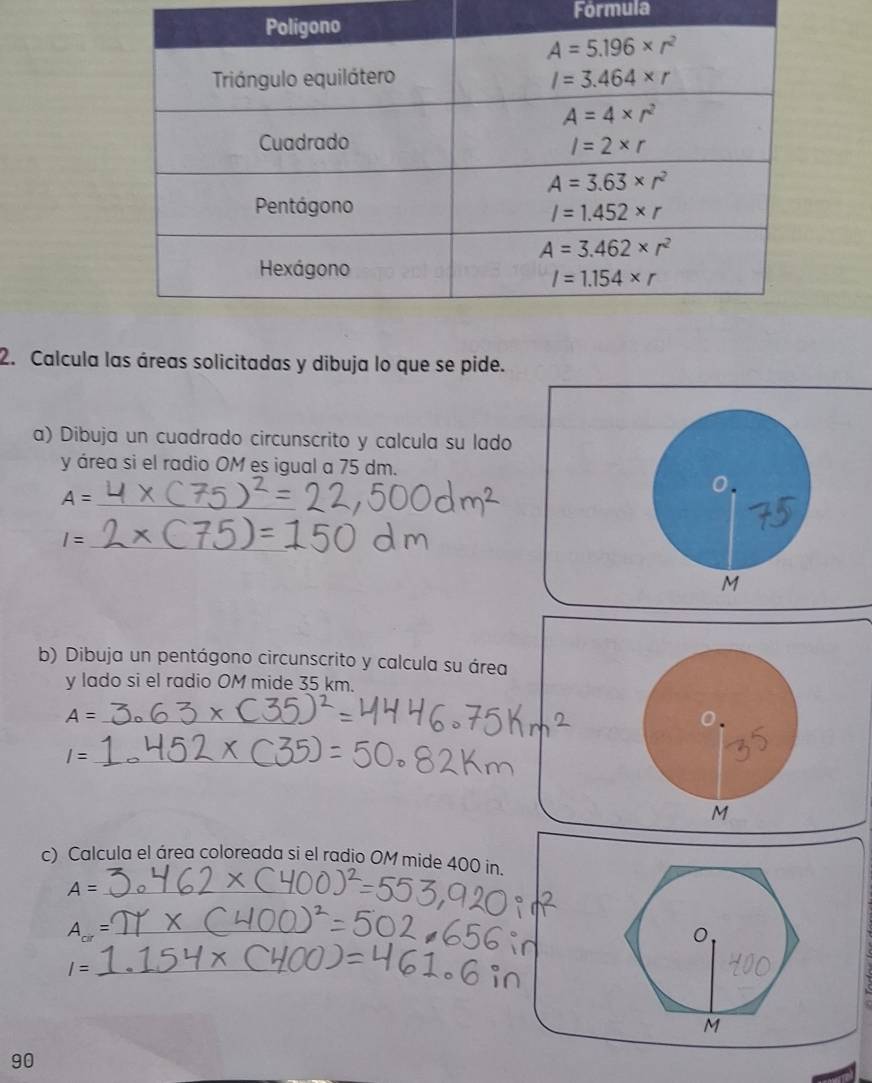 Polígono Fórmula
Triángulo equilátero A = 5.196 × r²
l = 3.464 × r
Cuadrado A = 4 × r²
l = 2 × r
Pentágono A = 3.63 × r²
l = 1.452 × r
Hexágono A = 3.462 × r²
l = 1.154 × r
2. Calcula las áreas solicitadas y dibuja lo que se pide.
a) Dibuja un cuadrado circunscrito y calcula su lado
y área si el radio OM es igual a 75 dm.
A = 4 × (75)² = 22,500 dm²
l = 2 × (75) = 150 dm
O
75
M
b) Dibuja un pentágono circunscrito y calcula su área
y lado si el radio OM mide 35 km.
A = 3.63 × (35)² = 4446.75 Km²
l = 1.452 × (35) = 50.82 Km
O
35
M
c) Calcula el área coloreada si el radio OM mide 400 in.
A = 3.462 × (400)² = 553,920 in²
A_cir = π × (400)² = 502,656 in
l = 1.154 × (400) = 461.6 in
O
400
M
90